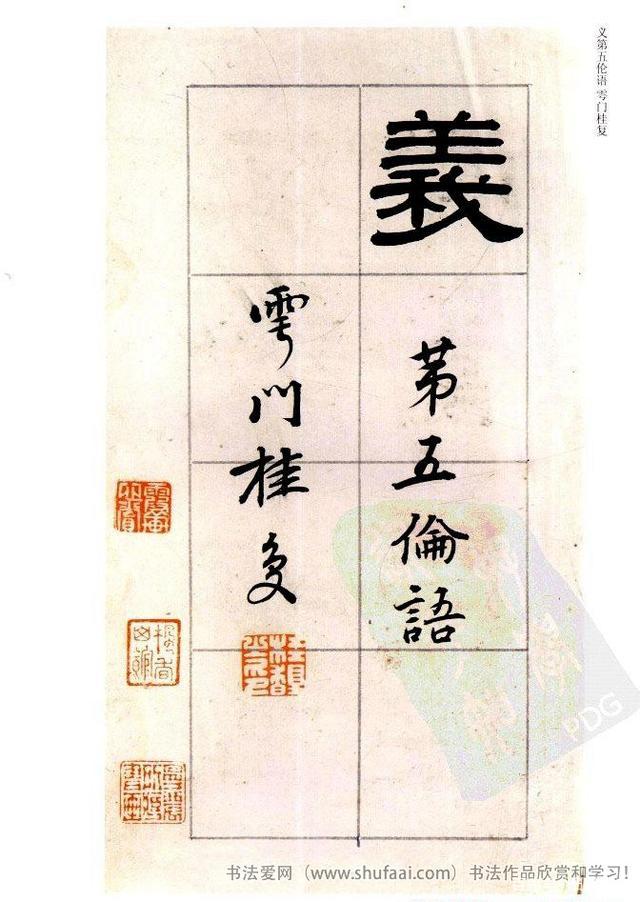 义第五伦语 雩门桂复
義
第五倫語
雩門桂复
桂馥
PDG
书法爱网（www.shufaai.com）书法作品欣赏和学习！